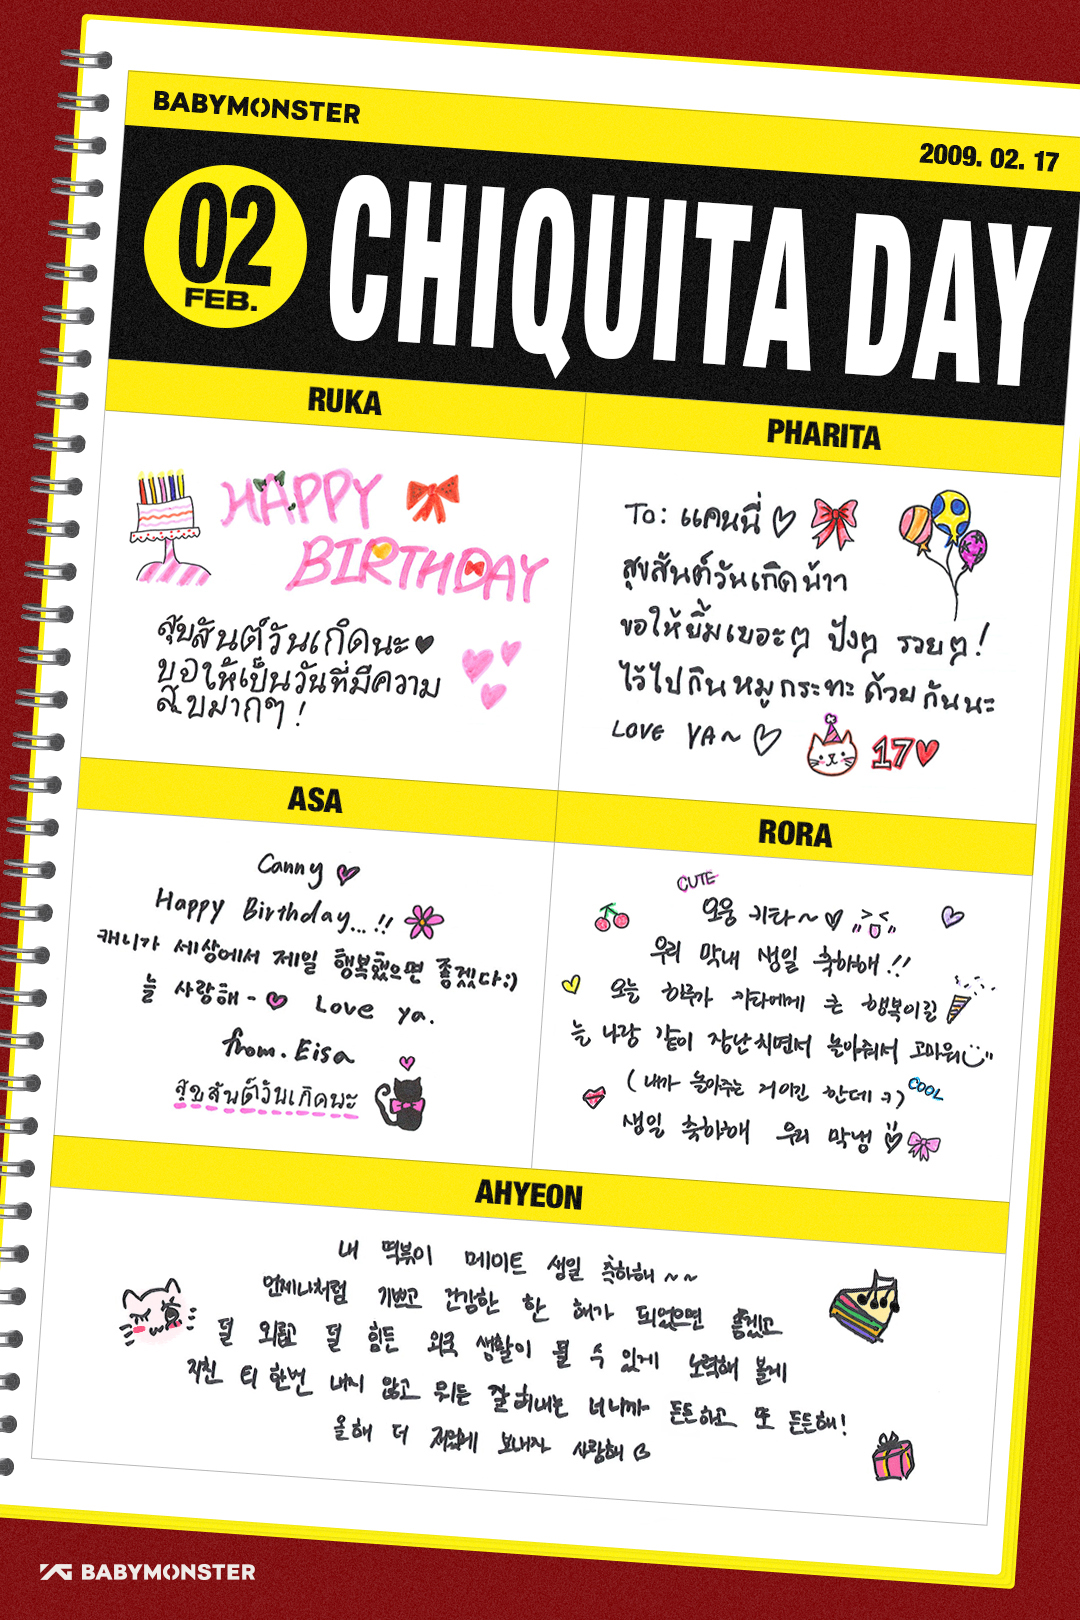 BABYMONSTER
2009. 02. 17
02
FEB.
CHIQUITA DAY
RUKA
HAPPY
BIRTHDAY
สุขสันต์วันเกิดนะ♥
ขอให้เป็นวันที่มีความ
สุขมากๆ !
PHARITA
To: แคนนี่ ♡
สุขสันต์วันเกิดน้าา
ขอให้ยิ้มเยอะๆ ปังๆ รวยๆ!
ไว้ไปกินหมูกระทะด้วยกันนะ
LOVE YA~ ♡
17♥
ASA
Canny ♥
Happy Birthday...!!
캐니가 세상에서 제일 행복했으면 좋겠다:)
늘 사랑해- ♥ Love ya.
from. Eisa
สุขสันต์วันเกิดนะ
RORA
CUTE
오웅 키타~♡ >.<
우리 막내 생일 축하해!!
오늘 하루가 키타에게 큰 행복이길
늘 나랑 같이 장난치면서 놀아줘서 고마워
(내가 놀아주는 거이긴 한데 ㅋ)
COOL
생일 축하해 우리 막냉 ♡
AHYEON
내 떡볶이 메이트 생일 축하해~~
언제나처럼 기쁘고 건강한 한 해가 되었으면 좋겠고
덜 외롭고 덜 힘든 외국 생활이 될 수 있게 노력해 볼게
지친 티 한번 내지 않고 뭐든 잘 해내는 너니까 든든하고 또 든든해!
올해 더 재밌게 보내자 사랑해 ♡
YG BABYMONSTER